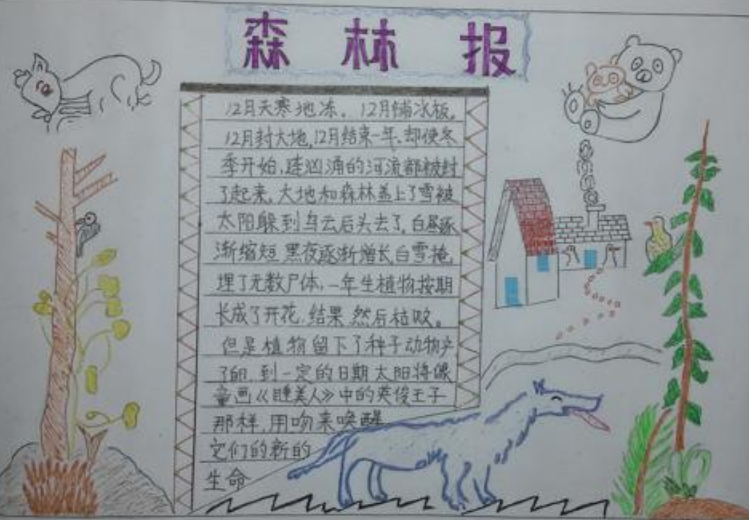 森林报
12月天寒地冻。12月铺冰板,
12月封大地,12月结束一年,却使冬
季开始,连汹涌的河流都被封
了起来,大地和森林盖上了雪被
太阳躲到乌云后头去了,白昼逐
渐缩短,黑夜逐渐增长,白雪掩
埋了无数尸体,一年生植物按期
长成了开花,结果,然后枯败。
但是植物留下了种子动物产
了卵,到一定的日期太阳将像
童画《睡美人》中的英俊王子
那样,用吻来唤醒
它们的新的
生命